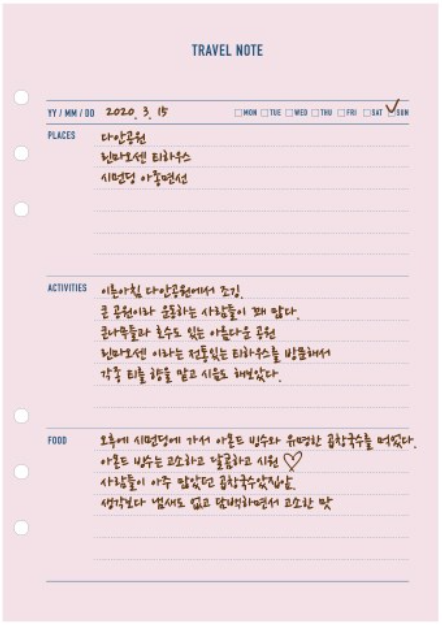 TRAVEL NOTE
YY / MM / DD 2020. 3. 15 MON TUE WED THU FRI SAT SUN
PLACES 다안공원
린마오센 티하우스
시먼딩 아종면선
ACTIVITIES 이른아침 다안공원에서 조깅.
큰 공원이라 운동하는 사람들이 꽤 많다.
큰나무들과 호수도 있는 아름다운 공원
린마오센 이라는 전통있는 티하우스를 방문해서
각종 티를 향을 맡고 시음도 해보았다.
FOOD 오후에 시먼딩에 가서 아몬드 빙수와 유명한 곱창국수를 먹었다.
아몬드 빙수는 고소하고 달콤하고 시원
사람들이 아주 많았던 곱창국수맛집앞.
생각보다 냄새도 없고 담백하면서 고소한 맛